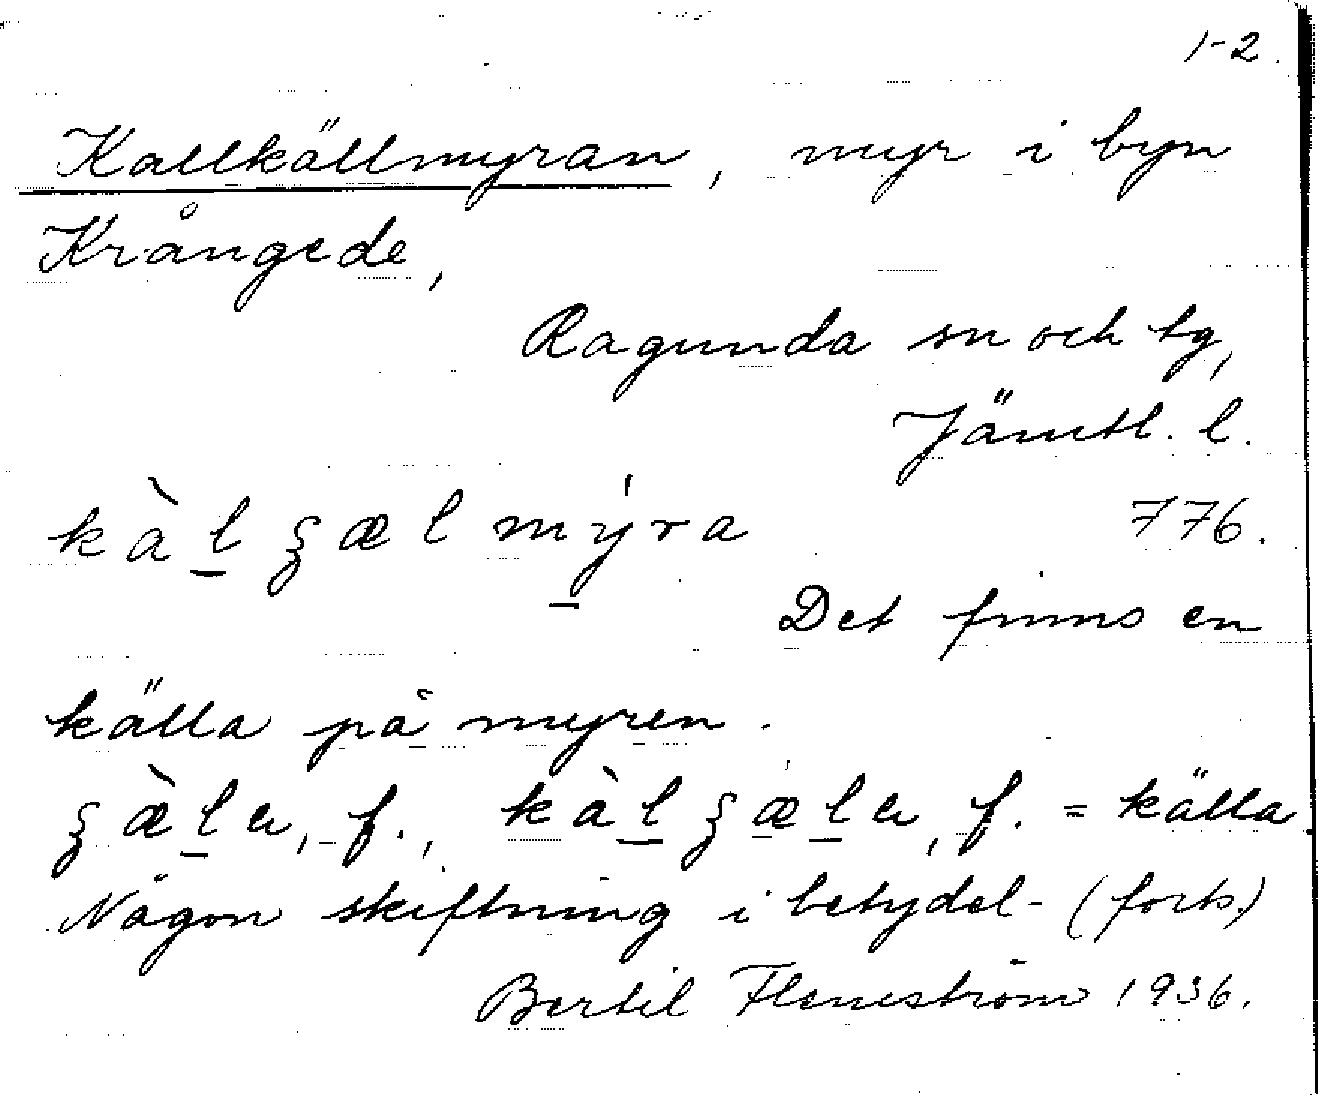 1-2.
Kallkällmyran, myr i byn
Krångede,
Ragunda sn och tg,
Jämtl. l.
kàl̲ ʒæl mý̲ra 776.
Det finns en
källa på myren.
ʒæ̀l̲a, f., kàl̲ʒæ̲l̲a, f. = källa.
Någon skiftning i betydel- (forts.)
Bertil Flemström 1936.